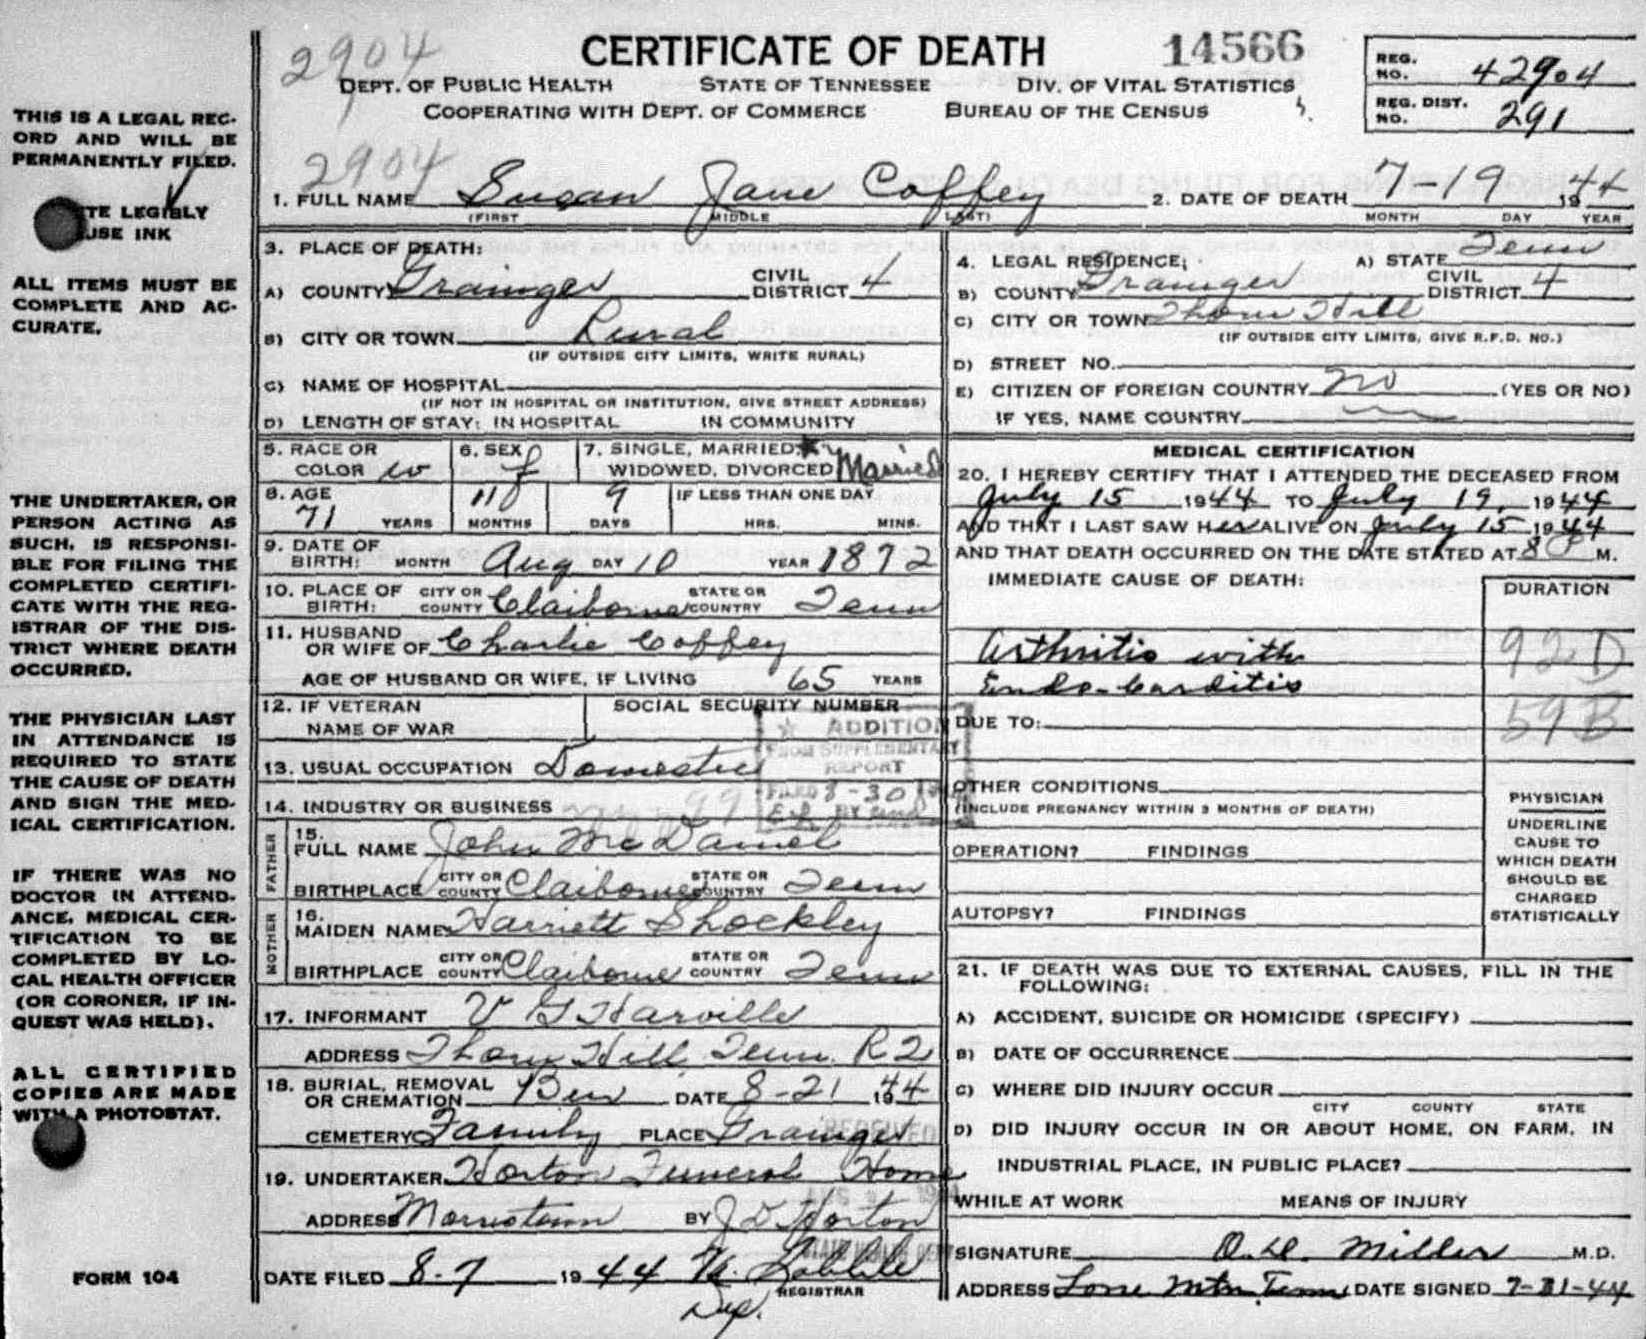 CERTIFICATE OF DEATH
14566
2904
DEPT. OF PUBLIC HEALTH STATE OF TENNESSEE DIV. OF VITAL STATISTICS
COOPERATING WITH DEPT. OF COMMERCE BUREAU OF THE CENSUS
REG. NO. 42904
REG. DIST. NO. 291
THIS IS A LEGAL REC-
ORD AND WILL BE
PERMANENTLY FILED.
LEGIBLY
USE INK
ALL ITEMS MUST BE
COMPLETE AND AC-
CURATE.
THE UNDERTAKER, OR
PERSON ACTING AS
SUCH, IS RESPONSI-
BLE FOR FILING THE
COMPLETED CERTIFI-
CATE WITH THE REG-
ISTRAR OF THE DIS-
TRICT WHERE DEATH
OCCURRED.
THE PHYSICIAN LAST
IN ATTENDANCE IS
REQUIRED TO STATE
THE CAUSE OF DEATH
AND SIGN THE MED-
ICAL CERTIFICATION.
IF THERE WAS NO
DOCTOR IN ATTEND-
ANCE, MEDICAL CER-
TIFICATION TO BE
COMPLETED BY LO-
CAL HEALTH OFFICER
(OR CORONER, IF IN-
QUEST WAS HELD).
ALL CERTIFIED
COPIES ARE MADE
WITH A PHOTOSTAT.
FORM 104
2904
1. FULL NAME Susan Jane Coffey 2. DATE OF DEATH 7-19 1944
(FIRST MIDDLE LAST) MONTH DAY YEAR
3. PLACE OF DEATH:
A) COUNTY Grainger CIVIL DISTRICT 4
B) CITY OR TOWN Rural
(IF OUTSIDE CITY LIMITS, WRITE RURAL)
C) NAME OF HOSPITAL
(IF NOT IN HOSPITAL OR INSTITUTION, GIVE STREET ADDRESS)
D) LENGTH OF STAY: IN HOSPITAL IN COMMUNITY
4. LEGAL RESIDENCE: A) STATE Tenn
B) COUNTY Grainger CIVIL DISTRICT 4
C) CITY OR TOWN Thorn Hill
(IF OUTSIDE CITY LIMITS, GIVE R.F.D. NO.)
D) STREET NO.
E) CITIZEN OF FOREIGN COUNTRY no (YES OR NO)
IF YES, NAME COUNTRY
5. RACE OR COLOR w 6. SEX f 7. SINGLE, MARRIED, WIDOWED, DIVORCED Married
8. AGE 71 YEARS 11 MONTHS 9 DAYS IF LESS THAN ONE DAY HRS. MINS.
9. DATE OF BIRTH: MONTH Aug DAY 10 YEAR 1872
10. PLACE OF BIRTH: CITY OR COUNTY Claiborne STATE OR COUNTRY Tenn
11. HUSBAND OR WIFE OF Charlie Coffey
AGE OF HUSBAND OR WIFE, IF LIVING 65 YEARS
12. IF VETERAN NAME OF WAR SOCIAL SECURITY NUMBER
ADDITION
FROM SUPPLEMENTARY
REPORT
FILED 8-30
BY
13. USUAL OCCUPATION Domestic
14. INDUSTRY OR BUSINESS
FATHER
15. FULL NAME John McDaniel
BIRTHPLACE CITY OR COUNTY Claiborne STATE OR COUNTRY Tenn
MOTHER
16. MAIDEN NAME Harriett Shockley
BIRTHPLACE CITY OR COUNTY Claiborne STATE OR COUNTRY Tenn
17. INFORMANT V G Harville
ADDRESS Thorn Hill, Tenn. R 2
18. BURIAL, REMOVAL OR CREMATION Bur DATE 8-21 1944
CEMETERY Family PLACE Grainger
RECEIVED
19. UNDERTAKER Horton Funeral Home
ADDRESS Morristown BY J D Horton
DATE FILED 8-7 1944
REGISTRAR
Dep.
MEDICAL CERTIFICATION
20. I HEREBY CERTIFY THAT I ATTENDED THE DECEASED FROM
July 15 1944 TO July 19, 1944
AND THAT I LAST SAW HER ALIVE ON July 15 1944
AND THAT DEATH OCCURRED ON THE DATE STATED AT 8 P M.
IMMEDIATE CAUSE OF DEATH: DURATION
Arthritis with 92D
Endo-carditis
DUE TO: 59B
OTHER CONDITIONS
(INCLUDE PREGNANCY WITHIN 3 MONTHS OF DEATH)
OPERATION? FINDINGS
AUTOPSY? FINDINGS
PHYSICIAN
UNDERLINE
CAUSE TO
WHICH DEATH
SHOULD BE
CHARGED
STATISTICALLY
21. IF DEATH WAS DUE TO EXTERNAL CAUSES, FILL IN THE
FOLLOWING:
A) ACCIDENT, SUICIDE OR HOMICIDE (SPECIFY)
B) DATE OF OCCURRENCE
C) WHERE DID INJURY OCCUR
CITY COUNTY STATE
D) DID INJURY OCCUR IN OR ABOUT HOME, ON FARM, IN
INDUSTRIAL PLACE, IN PUBLIC PLACE?
WHILE AT WORK MEANS OF INJURY
SIGNATURE O. D. Miller M.D.
ADDRESS Lone Mtn Tenn DATE SIGNED 7-31-44